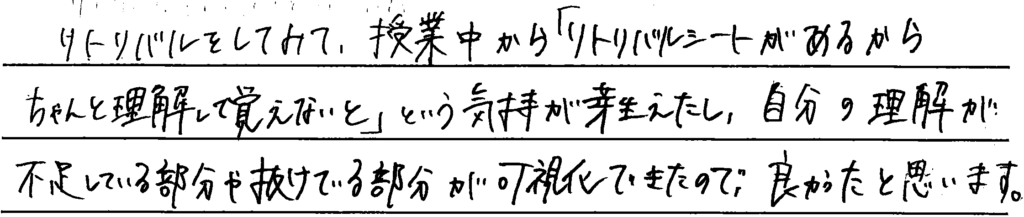 リトリバルをしてみて、授業中から「リトリバルシートがあるから
ちゃんと理解して覚えないと」という気持が芽生えたし、自分の理解が
不足している部分や抜けている部分が可視化できたので、良かったと思います。